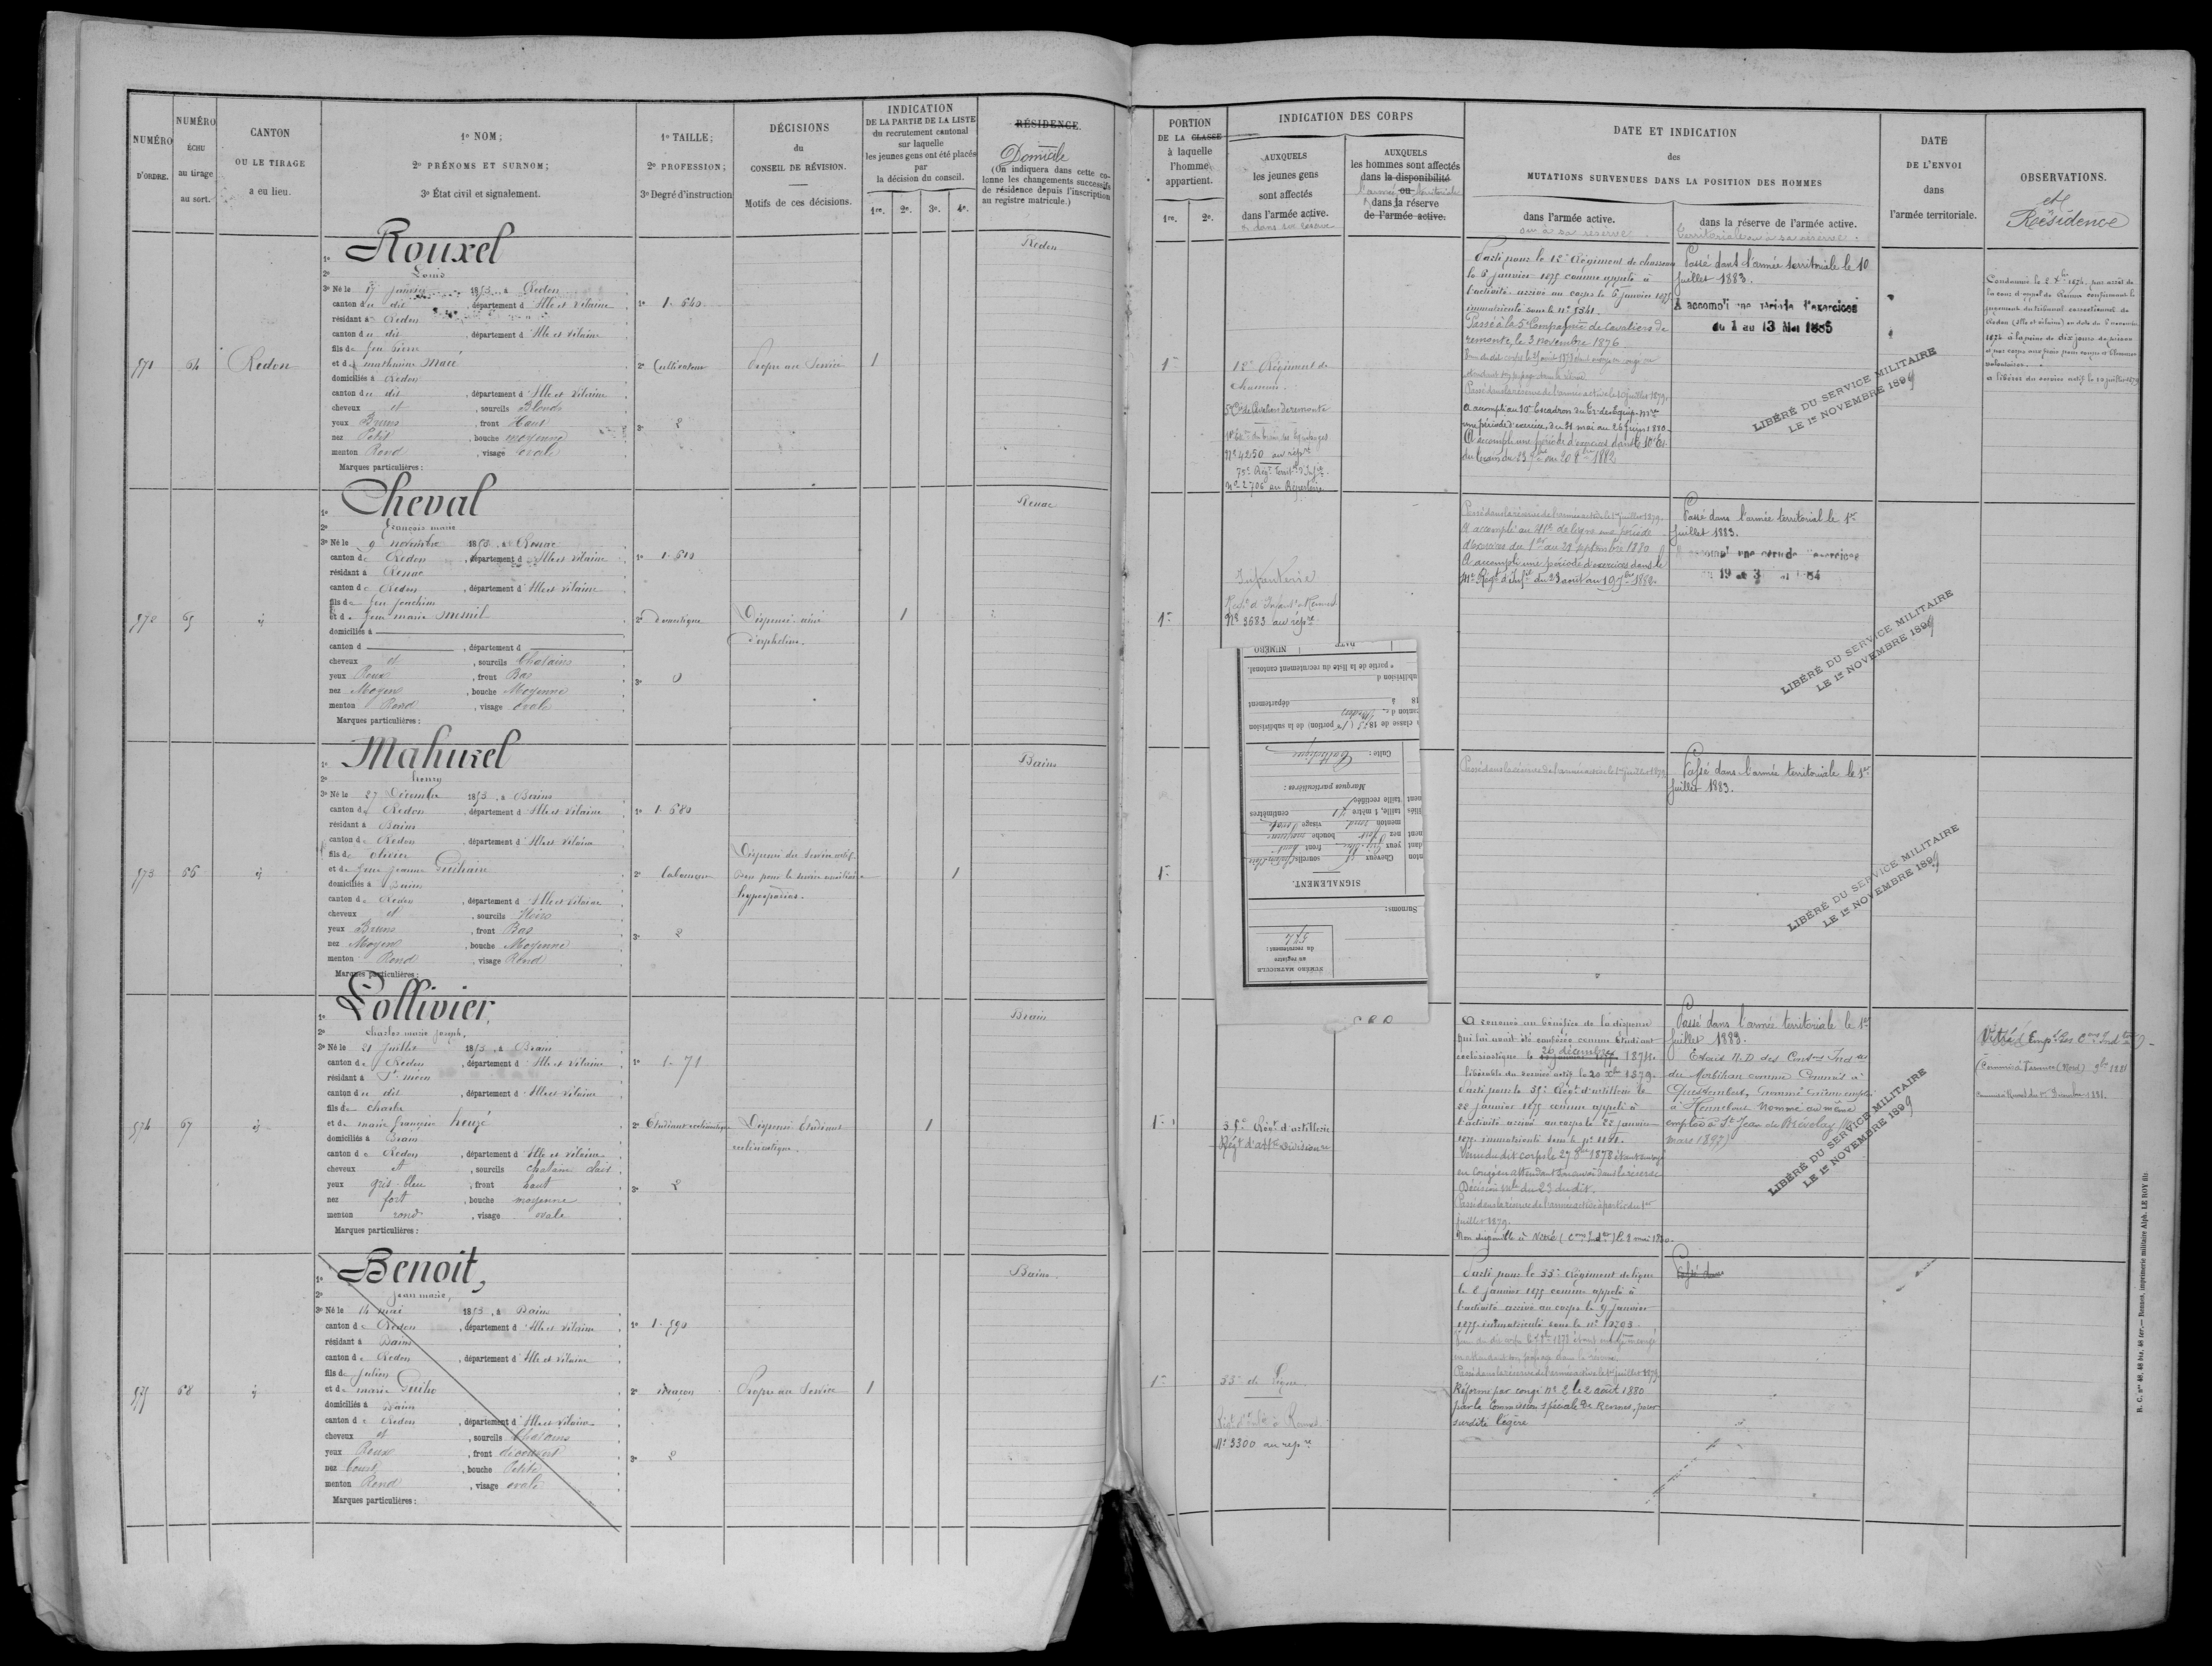 NUMÉRO
D'ORDRE.
NUMÉRO
ÉCHU
au tirage
au sort.
CANTON
OU LE TIRAGE
a eu lieu.
1º NOM;
2º PRÉNOMS ET SURNOM;
3º État civil et signalement.
1º TAILLE;
2º PROFESSION;
3º Degré d'instruction
DÉCISIONS
du
CONSEIL DE RÉVISION.
Motifs de ces décisions.
INDICATION
DE LA PARTIE DE LA LISTE
du recrutement cantonal
sur laquelle
les jeunes gens ont été placés
par
la décision du conseil.
1re. 2e. 3e. 4e.
RÉSIDENCE.
Domicile
(On indiquera dans cette co-
lonne les changements successifs
de résidence depuis l'inscription
au registre matricule.)
571
64
Redon
1º Rouxel
2º Louis
3º Né le 17 janvier 1853, à Redon
canton du dit, département d'Ille et Vilaine
résidant à Redon
canton du dit, département d'Ille et Vilaine
fils de feu Pierre
et de mathurine Macé
domiciliés à Redon
canton du dit, département d'Ille et Vilaine
cheveux et, sourcils Blonds
yeux Bruns, front Haut
nez Petit, bouche moyenne
menton Rond, visage ovale
Marques particulières:
1º 1.640
2º Cultivateur
3º 2
Propre au Service
1
Redon
572
65
1º Cheval
2º François marie
3º Né le 9 novembre 1853, à Renac
canton de Redon, département d'Ille et Vilaine
résidant à Renac
canton de Redon, département d'Ille et Vilaine
fils de feu Joachim
et de feue marie Mesnil
domiciliés à
canton d, département d
cheveux et, sourcils Chatains
yeux Roux, front Bas
nez Moyen, bouche Moyenne
menton Rond, visage ovale
Marques particulières:
1º 1.610
2º Domestique
3º 0
Dispensé ainé
d'orphelins.
1
Renac
573
66
1º Mahurel
2º henry
3º Né le 27 Décembre 1853, à Bains
canton de Redon, département d'Ille et Vilaine
résidant à Bains
canton de Redon, département d'Ille et Vilaine
fils de olivier
et de feue Jeanne
domiciliés à Bains
canton de Redon, département d'Ille et Vilaine
cheveux et, sourcils Noirs
yeux Bruns, front Bas
nez Moyen, bouche Moyenne
menton Rond, visage Rond
Marques particulières:
1º 1.680
2º laboureur
3º 2
Dispensé du service actif.
Bon pour le service auxiliaire
1
Bains
574
67
1º Lollivier,
2º Charles marie Joseph,
3º Né le 21 Juillet 1853, à Brain
canton de Redon, département d'Ille et Vilaine
résidant à St méen
canton du dit, département d'Ille et Vilaine
fils de Charles
et de marie françoise heuzé
domiciliés à Brain
canton de Redon, département d'Ille et Vilaine
cheveux et, sourcils chatain clair
yeux gris-bleu, front haut
nez fort, bouche moyenne
menton rond, visage ovale
Marques particulières:
1º 1.71
2º Etudiant ecclésiastique
3º 2
Dispensé Etudiant
ecclésiastique.
1
Brain
575
68
1º Benoit,
2º Jean marie,
3º Né le 14 mai 1853, à Bains
canton de Redon, département d'Ille et Vilaine
résidant à Bains
canton de Redon, département d'Ille et Vilaine
fils de Julien
et de marie Guiho
domiciliés à Bains
canton de Redon, département d'Ille et Vilaine
cheveux et, sourcils Chatains
yeux Roux, front découvert
nez Court, bouche Petite
menton Rond, visage ovale
Marques particulières:
1º 1.590
2º
3º 2
Propre au Service
1
Bains.
PORTION
DE LA CLASSE
à laquelle
l'homme
appartient.
1re. 2e.
INDICATION DES CORPS
AUXQUELS
les jeunes gens
sont affectés
dans l'armée active.
et dans sa réserve
AUXQUELS
les hommes sont affectés
dans la disponibilité
l'armée ou territoriale
dans la réserve
de l'armée active.
DATE ET INDICATION
des
MUTATIONS SURVENUES DANS LA POSITION DES HOMMES
dans l'armée active.
ou à sa réserve.
dans la réserve de l'armée active.
territoriale ou à sa réserve.
DATE
DE L'ENVOI
dans
l'armée territoriale.
OBSERVATIONS.
et
Résidence
1re
12e Régiment de
chasseurs.
5e Cie de Cavaliers de remonte
Nº 4250 au répre
75e Régt Territ. d'Infie
nº 2706 au Répertoire
Parti pour le 12e Régiment de chasseurs
le 6 janvier 1875 comme appelé à
l'activité arrivé au corps le 6 janvier 1875
immatriculé sous le nº 1541.
Passé à la 5e Compagnie de Cavaliers de
remonte, le 3 novembre 1876
Passé dans la réserve de l'armée active le 10 juillet 1879.
A accompli au 10e Escadron du Tr. des Equip. mres
une période d'exercice, du 31 mai au 26 Juin 1880.
A accompli une période d'exercices dans le 10e Er.
Passé dans l'armée territoriale le 10
Juillet 1883.
A accompli une période d'exercices
du 1 au 13 Mai 1885
LIBÉRÉ DU SERVICE MILITAIRE
LE 1er NOVEMBRE 1899
Condamné le 2 Xbre 1874, par arrêt de
la cour d'appel de Rennes confirmant le
jugement du tribunal correctionnel de
Redon (Ille et vilaine) en date du 6 novembre
1874 à la peine de dix jours de prison
volontaires.
et libéré du service actif le 10 juillet 1879
1re
Infanterie
Nº 3683 au répre
Passé dans la réserve de l'armée active le 1er juillet 1879.
A accompli au 41e de ligne une période
d'exercices du 1er au 28 septembre 1880
A accompli une période d'exercices dans le
Régt d'Infie du 23 août au 19 7bre 1882.
Passé dans l'armée territorial le 1er
Juillet 1883.
LIBÉRÉ DU SERVICE MILITAIRE
LE 1er NOVEMBRE 1899
NUMÉRO MATRICULE
au registre
du recrutement:
574
Surnoms:
SIGNALEMENT.
Cheveux et sourcils chatain clair
yeux gris bleu front haut
nez fort bouche moyenne
menton rond visage ovale
taille, 1 mètre 71 centimètres
taille rectifiée
Marques particulières:
Culte: Catholique
classe de 1873 (1re portion) de la subdivision
canton de
18 à département
subdivision d
e partie de la liste du recrutement cantonal.
NUMÉRO DATE
1re
Passé dans la réserve de l'armée active le 1er juillet 1879.
Passé dans l'armée territoriale le 1er
Juillet 1883.
LIBÉRÉ DU SERVICE MILITAIRE
LE 1er NOVEMBRE 1899
1re
35e Régt d'artillerie
Régt d'artie Divisionre
A renoncé au bénéfice de la dispense
qui lui avait été conférée comme Etudiant
ecclésiastique le 26 décembre 1874.
libérable du service actif le 20 Xbre 1879.
Parti pour le 35e Régt d'artillerie le
22 janvier 1875 comme appelé à
l'activité arrivé au corps le 22 janvier
1875 immatriculé sous le nº
Venu du dit corps le 27 8bre 1878 étant envoyé
en Congé en attendant son envoi dans la réserve
Décision mlle du 23 du dit.
Passé dans la réserve de l'armée active à partir du 1er
juillet 1879.
Non disponible à Vitré (Cons Indtes) le 2 mai 1880.
Passé dans l'armée territoriale le 1er
Juillet 1883.
Extrait N.D. des Contons Indes
du Morbihan comme Commis à
Questembert, nommé même emploi
à Hennebont. Nommé au même
emploi à St Jean du Brévelay
mars 1897
LIBÉRÉ DU SERVICE MILITAIRE
LE 1er NOVEMBRE 1899
1re
55e de ligne
Nº 3300 au répre
Parti pour le 55e Régiment de ligne
le 8 janvier 1875 comme appelé à
l'activité arrivé au corps le 9 janvier
1875 immatriculé sous le nº
Passé dans la réserve de l'armée active le 1er juillet 1879
Réformé par congé Nº 2 le 2 août 1880
par la Commission spéciale de Rennes, pour
surdité légère
Passé dans
R. C. nos 48, 48 bis, 48 ter. — Rennes, imprimerie militaire Alph. LE ROY fils